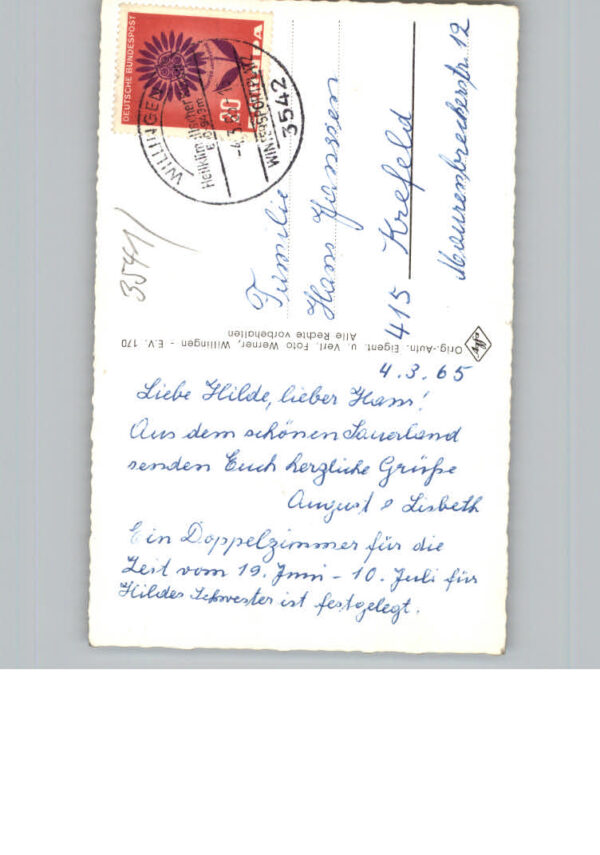 DEUTSCHE BUNDESPOST
20
WILLINGEN
Heilklimatischer
3542
3541/
Familie
Hans Janssen
415 Krefeld
Maurenbrecherstr. 12
Orig.-Aufn. Eigent. u. Verl. Foto Werner, Willingen - E.V. 170
Alle Rechte vorbehalten
4.3.65
Liebe Hilde, lieber Hans!
Aus dem schönen Sauerland
senden Euch herzliche Grüße
August & Lisbeth
Ein Doppelzimmer für die
Zeit vom 19. Juni - 10. Juli für
Hildes Schwester ist festgelegt.